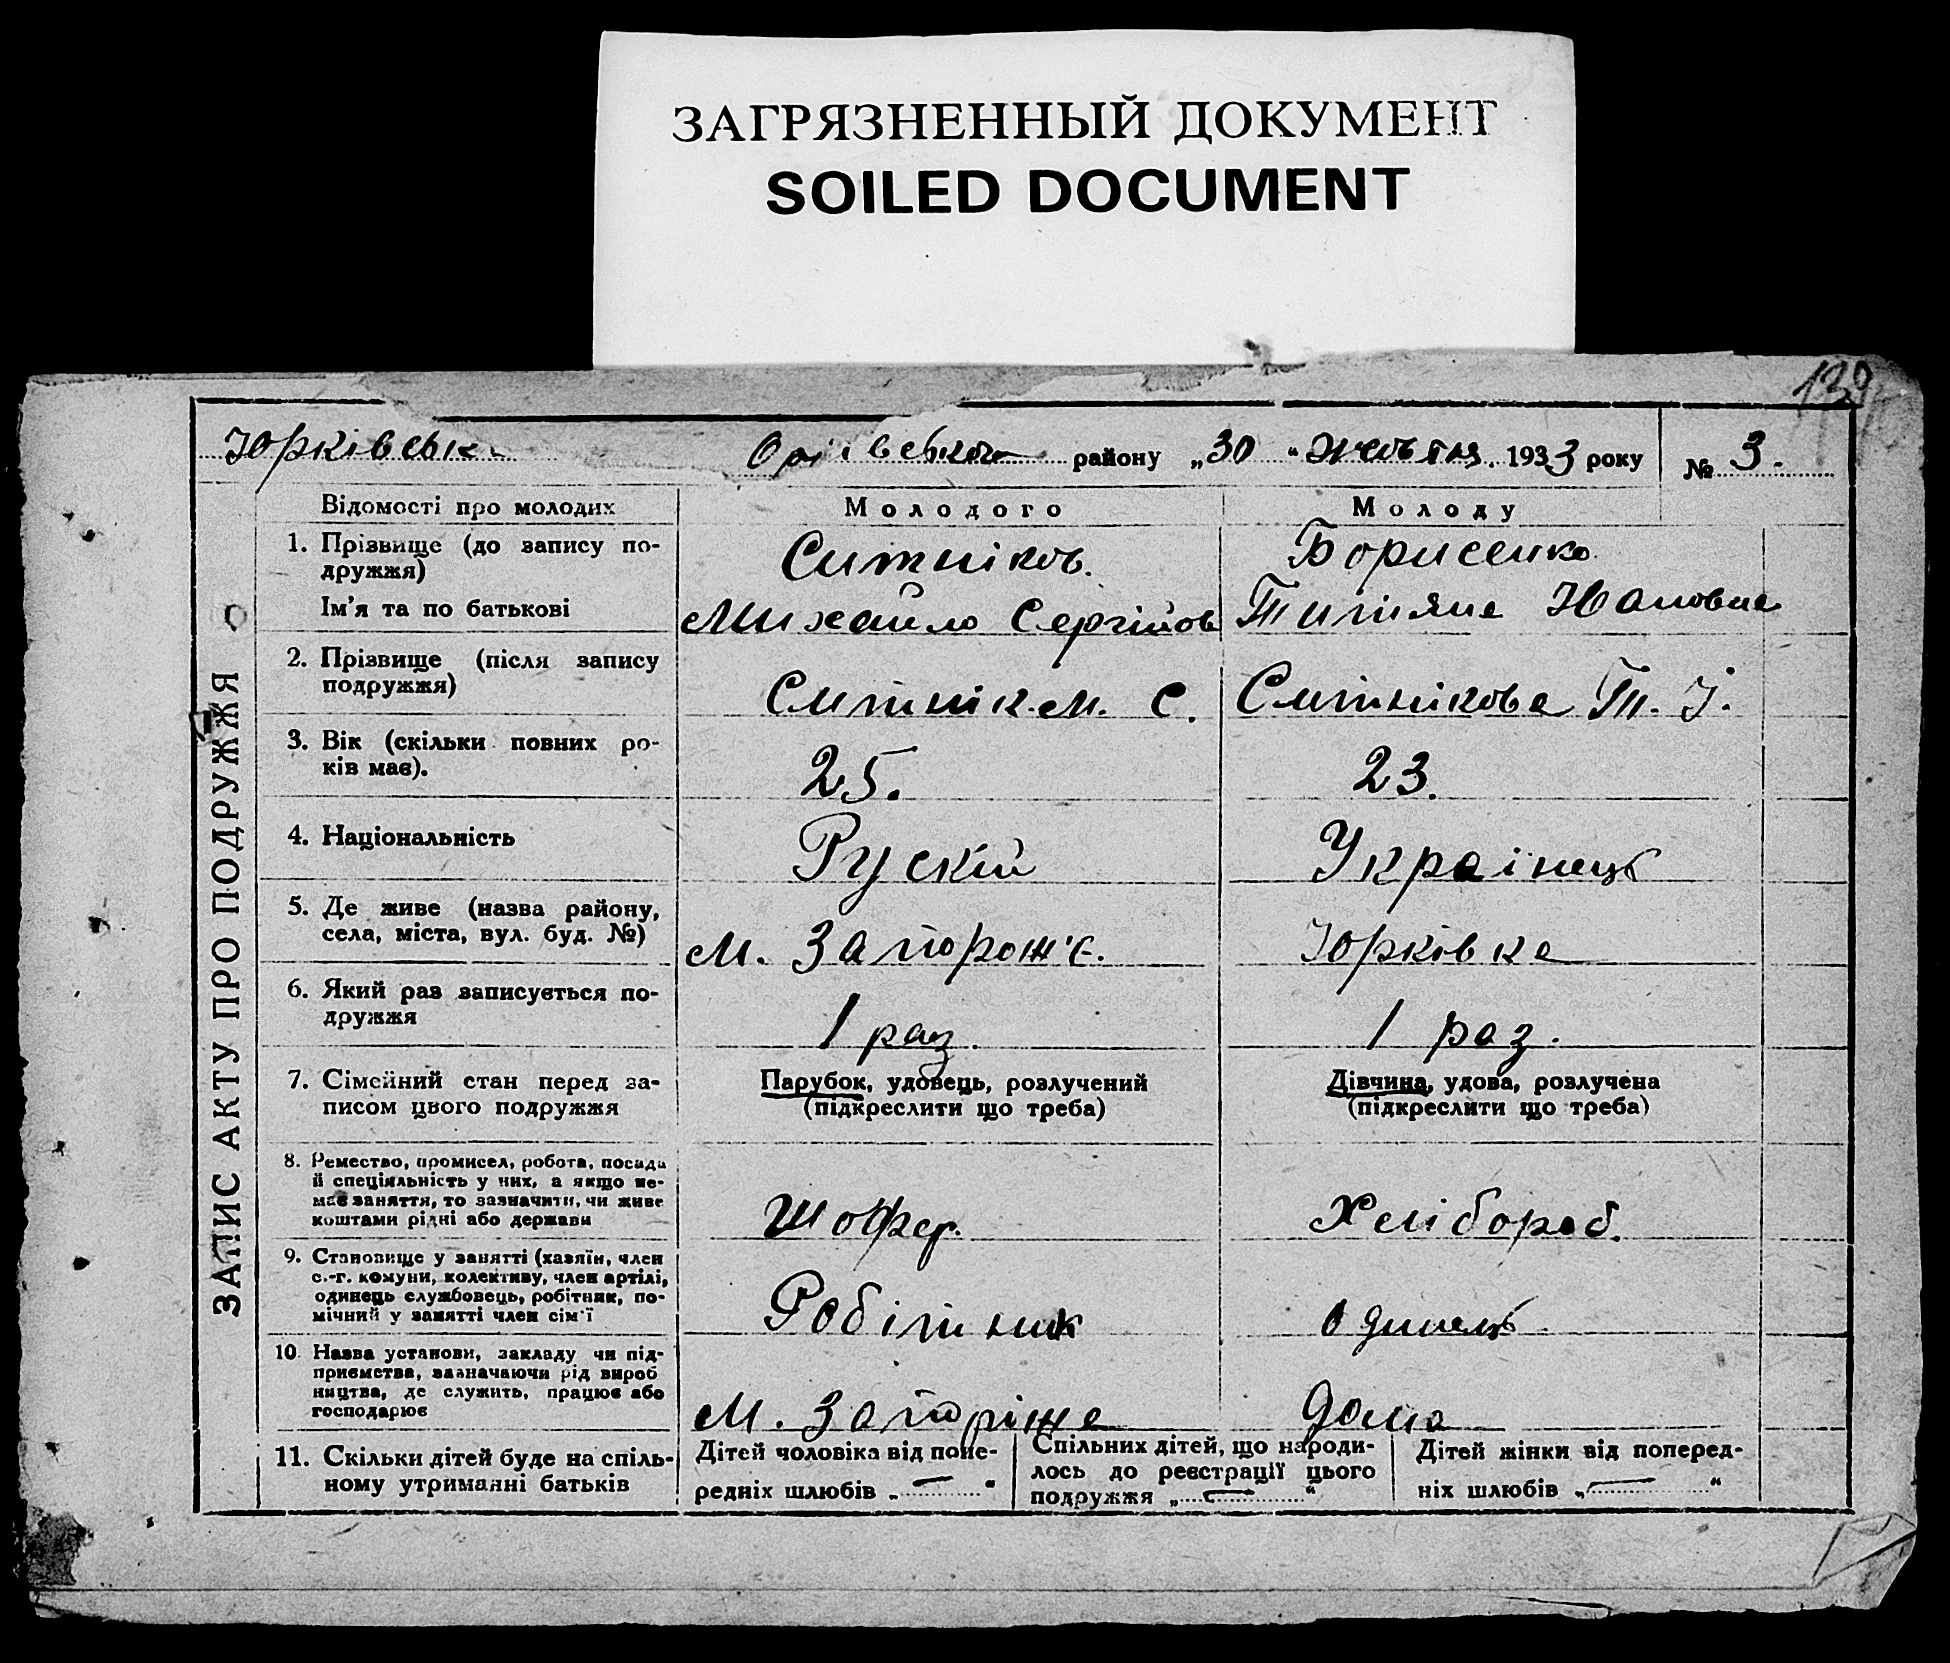 ЗАГРЯЗНЕННЫЙ ДОКУМЕНТ
SOILED DOCUMENT
139
Юрківськ Орі івського району „30“ Жовтня 1933 року № 3.
Відомості про молодих Молодого Молоду
ЗАПИС АКТУ ПРО ПОДРУЖЖЯ
1. Прізвище (до запису по-
дружжя) Ситніков. Борисенко
Ім'я та по батькові Михайло Сергійов Титяна Ивановна
2. Прізвище (після запису
подружжя) Ситнік. М. С. Ситнікова Т. І.
3. Вік (скільки повних ро-
ків має). 25. 23.
4. Національність Рускій Українець
5. Де живе (назва району,
села, міста, вул. буд. №) М. Запорож'є. Юрківка
6. Який раз записується по-
дружжя 1 раз. 1 раз.
7. Сімейний стан перед за- Парубок, удовець, розлучений Дівчина, удова, розлучена
писом цього подружжя (підкреслити що треба) (підкреслити що треба)
8. Ремество, промисел, робота, посада
й спеціяльність у них, а якщо не-
має заняття, то зазначити, чи живе
коштами рідні або держави Шофер. Хлібороб.
9. Становище у занятті (хазяїн, член
с.-г. комуни, колективу, член артілі,
одинець службовець, робітник, по-
мічний у занятті член сім'ї Робітник одинець
10. Назва установи, закладу чи під-
приємства, зазначаючи рід вироб
ництва, де служить, працює або
господарює М. Запоріже дома
11. Скільки дітей буде на спіль-
ному утриманні батьків
Дітей чоловіка від попе-
редніх шлюбів „ — “
Спільних дітей, що народи-
лось до реєстрації цього
подружжя „ — “
Дітей жінки від поперед-
ніх шлюбів „ — “